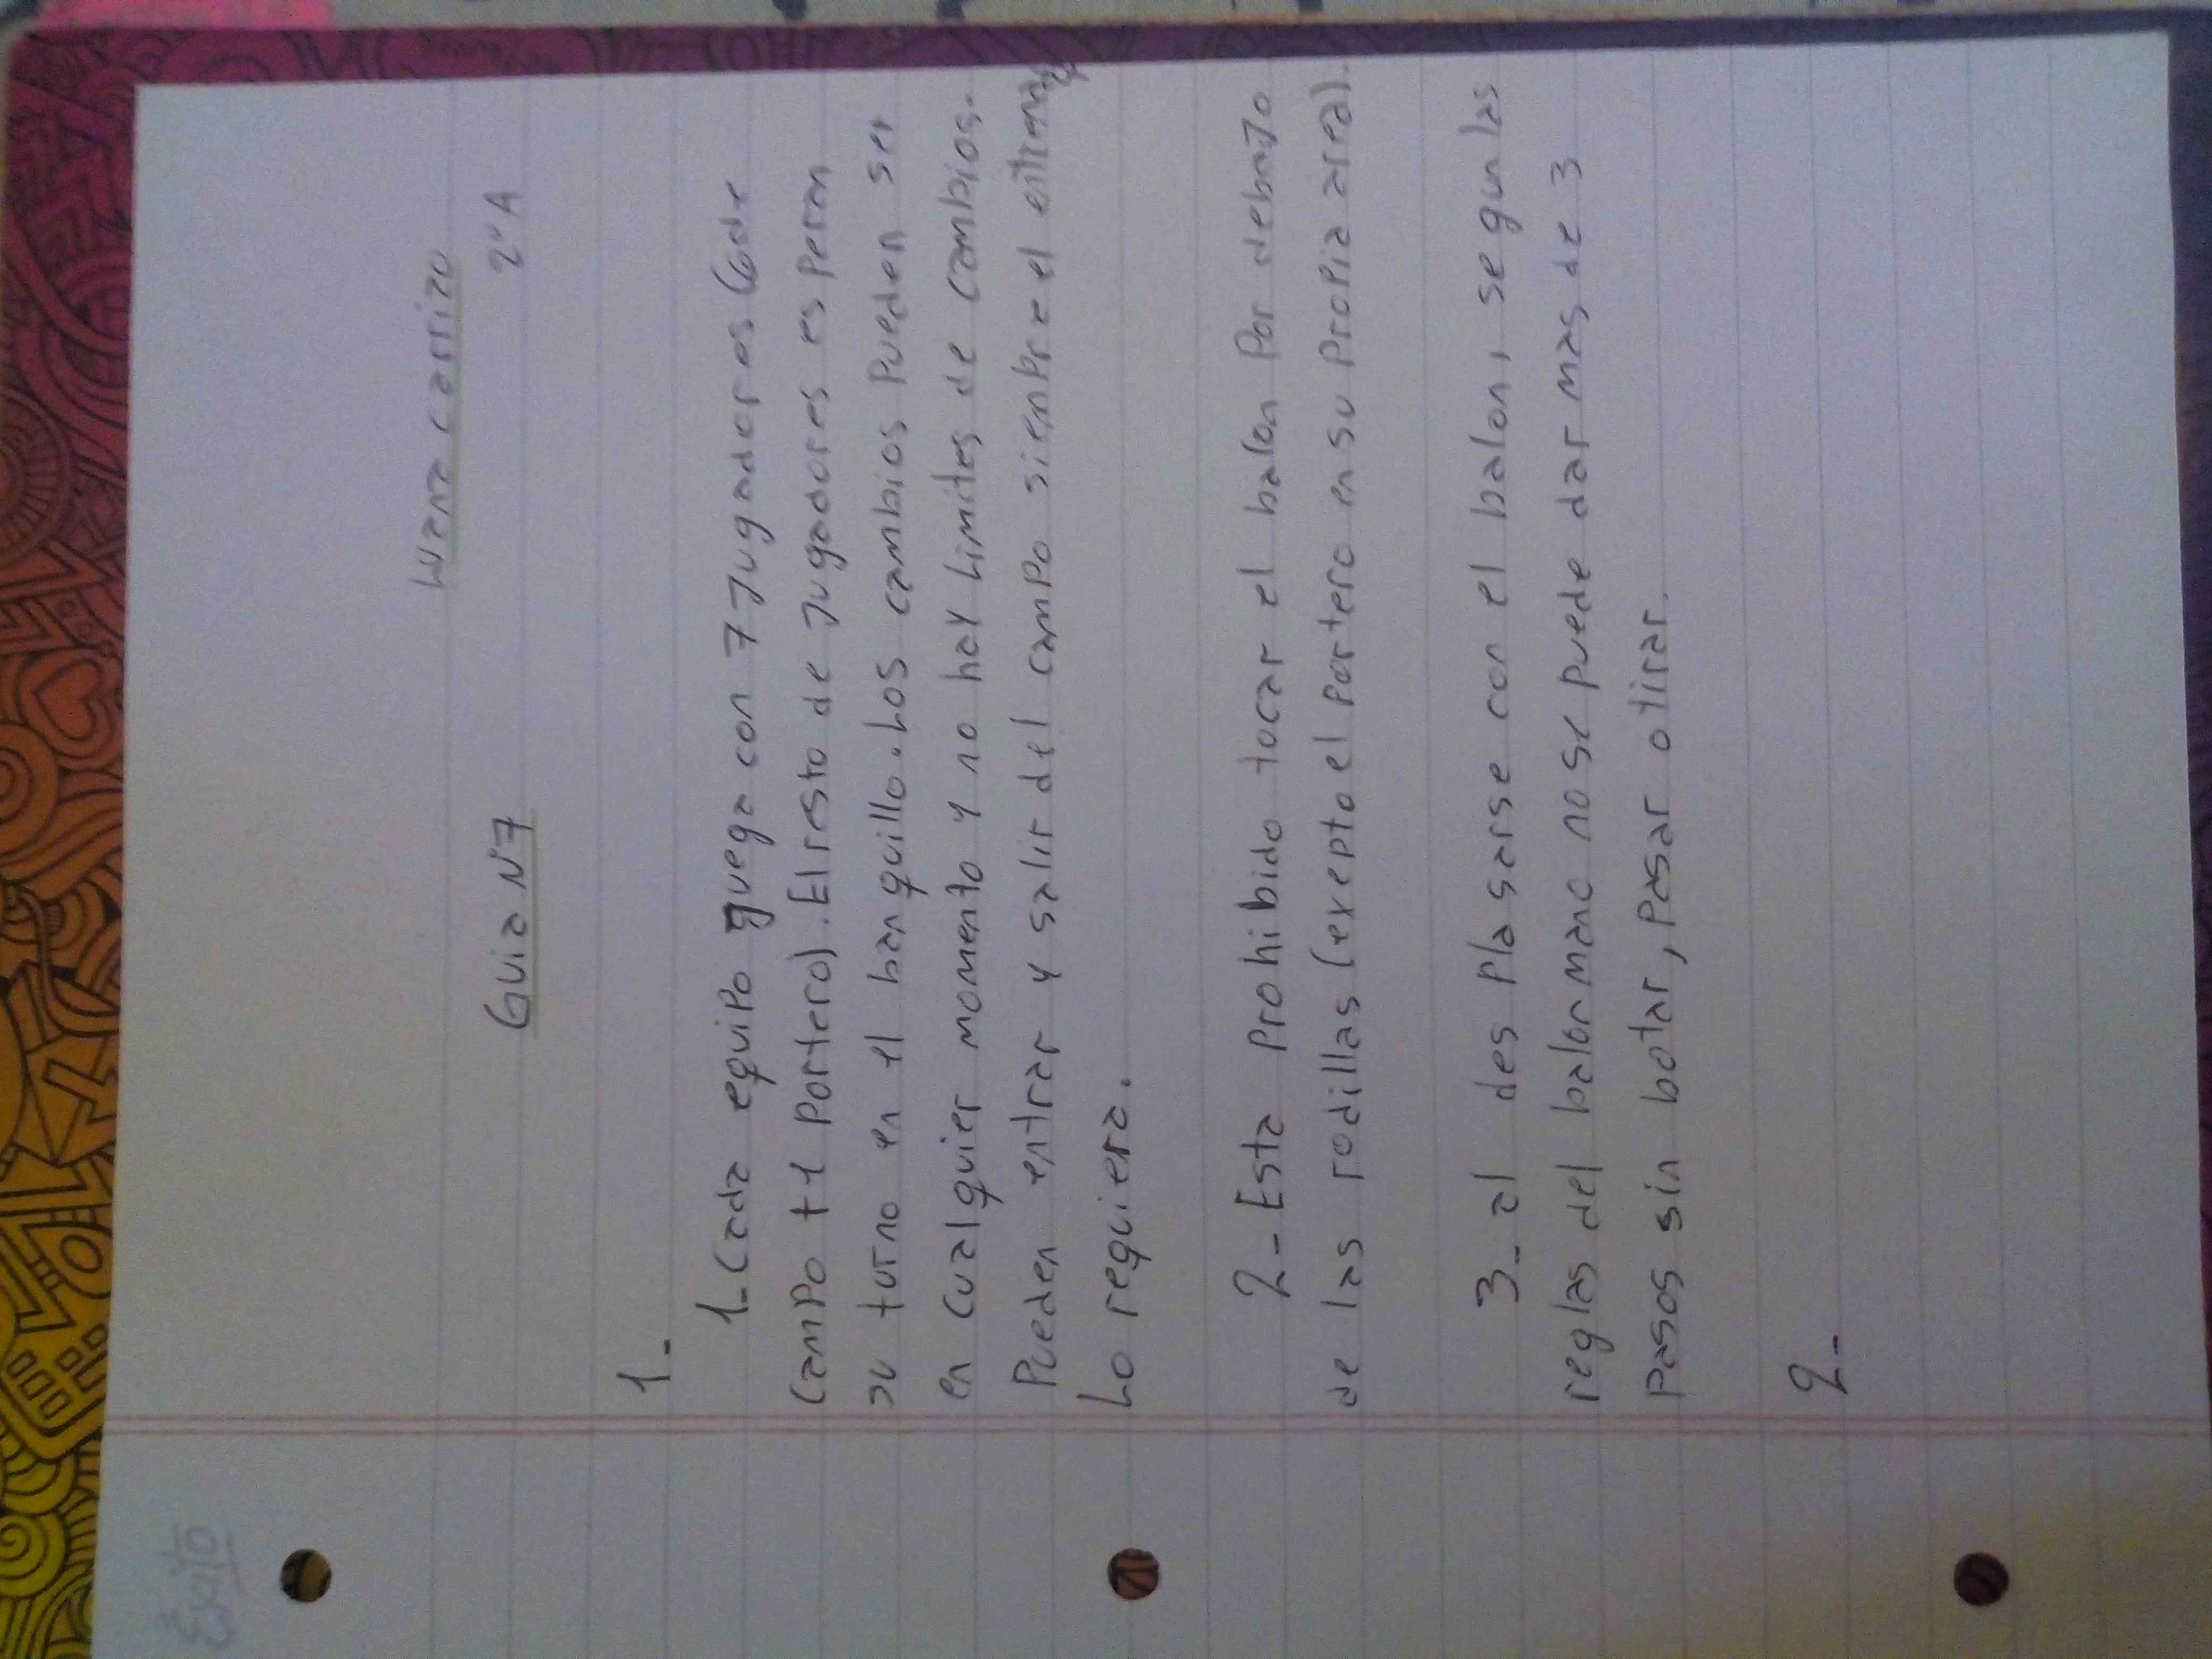 Éxito
Luana carrizo
Guia N°7 2°A
1_
1_Cada equipo guega con 7 Jugadores (6 de
campo +1 Portero). El resto de Jugadores es peran
su turno en el banquillo. Los cambios Pueden ser
en cualquier momento y no hay Limites de cambios.
Pueden entrar y salir del campo sienpre el
Lo requiera.
2_Esta Prohibido tocar el balon Por debaJo
de las rodillas (exepto el Portero en su Propia area).
3_ al des Plasarse con el balon, segun las
reglas del balonmano no se puede dar mas de 3
Pasos sin botar, Pasar o tirar.
2_